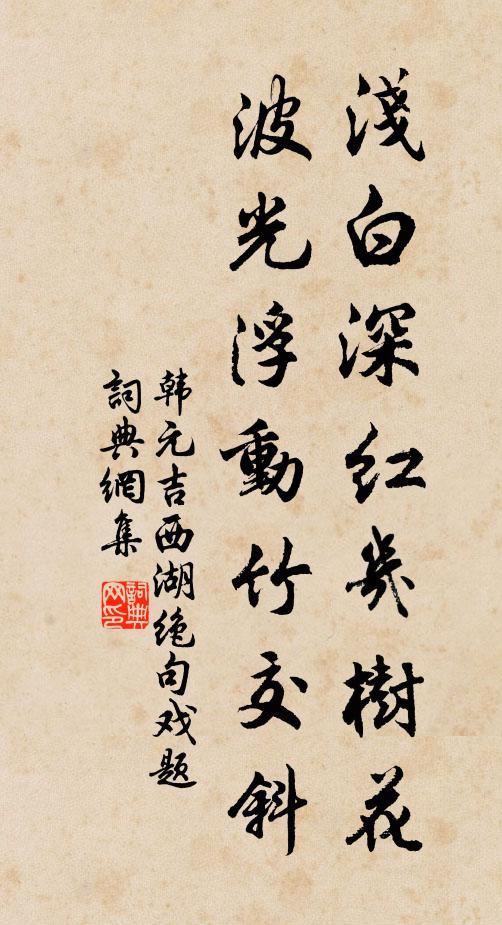 淺白深红幾樹花
波光浮動竹交斜
韩元吉西湖绝句戏题
詞典網集
詞典
网印